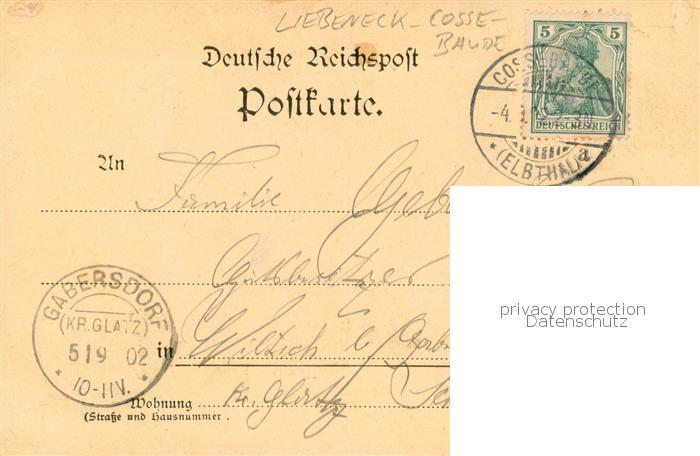 LIEBENECK - COSSE-
BAUDE
Deutsche Reichspost
Postkarte.
5 5
DEUTSCHES REICH
COSSEBAUDE
-4.
a
* (ELBTHAL)
An
Familie Geb
Gutsbesitzer
GABERSDORF
(KR. GLATZ)
5 1 9 02
* 10-11V. *
in Wiltsch b Gab
Kr. Glatz
Wohnung
(Straße und Hausnummer.
privacy protection
Datenschutz